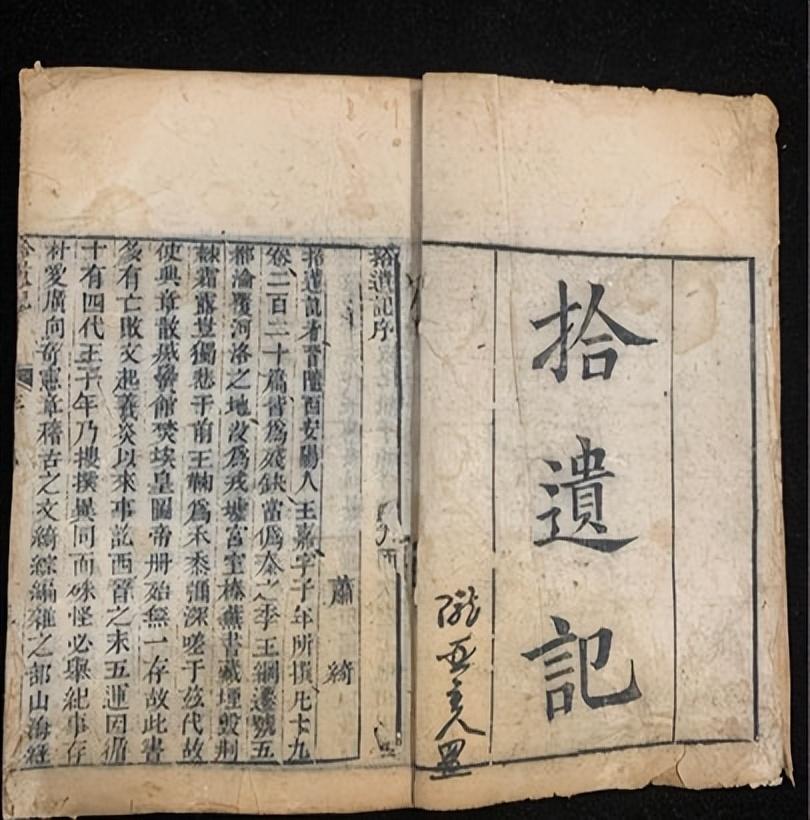 拾遺記
主人置
拾遺記序
蕭綺
拾遺記者晉隴西安陽人王嘉字子年所撰凡十九
卷二百二十篇皆爲殘缺當僞秦之季王綱遷號五
都淪覆河洛之地沒爲戎墟宮室榛蕪書藏堙毀荆
棘霜露豈獨悲于前王鞠爲禾黍彌深嗟于茲代故
使典章散滅黌館焚埃皇圖帝冊殆無一存故此書
多有亡散文起羲炎以來事訖西晉之末五運因循
十有四代王子年乃搜撰異同而殊怪必舉紀事存
朴愛廣向奇憲章稽古之文綺綜編雜之部山海經